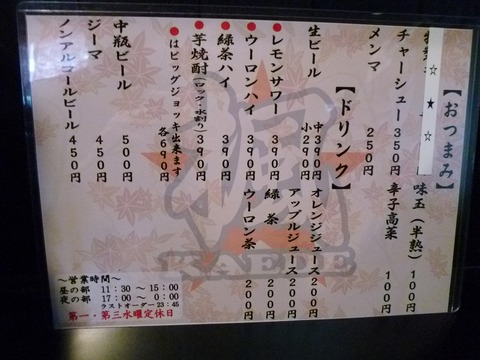 【おつまみ】
☆
★
☆
味玉（半熟） 100円
チャーシュー 350円
辛子高菜 100円
メンマ 250円
【ドリンク】
生ビール 中390円
小290円
オレンジジュース 200円
●レモンサワー 390円
アップルジュース 200円
●ウーロンハイ 390円
緑茶 200円
●緑茶ハイ 390円
ウーロン茶 200円
●芋焼酎（ロック・水割り） 390円
●はビッグジョッキ出来ます
各690円
中瓶ビール 500円
ジーマ 450円
ノンアルコールビール 450円
楓
KAEDE
～営業時間～
昼の部 11:30 ～ 15:00
夜の部 17:00 ～ 0:00
ラストオーダー 23:45
第一・第三水曜定休日